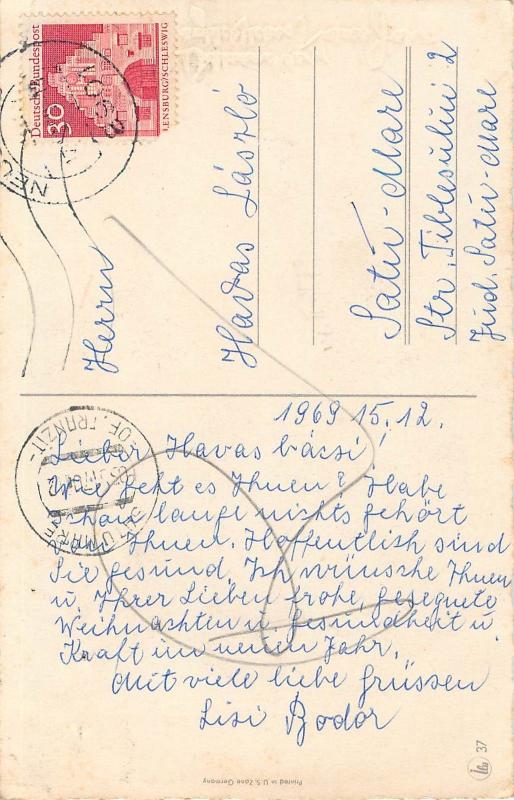 Deutsche Bundespost
30
FLENSBURG/SCHLESWIG
Herrn
Havas László
Satu-Mare
Str. Tiblesului 2
Jud. Satu-Mare
1969 15.12.
Lieber Havas bácsi!
Wie geht es Ihnen? Habe
schon lange nichts gehört
Ihnen. Hoffentlich sind
Sie gesund. Ich wünsche Ihnen
u. Ihrer Lieben frohe, gesegnete
Weihnachten u. Gesundheit u
Kraft im neuen Jahr.
Mit viele liebe Grüssen
Lisi Bodor
Printed in U.S. Zone Germany
37